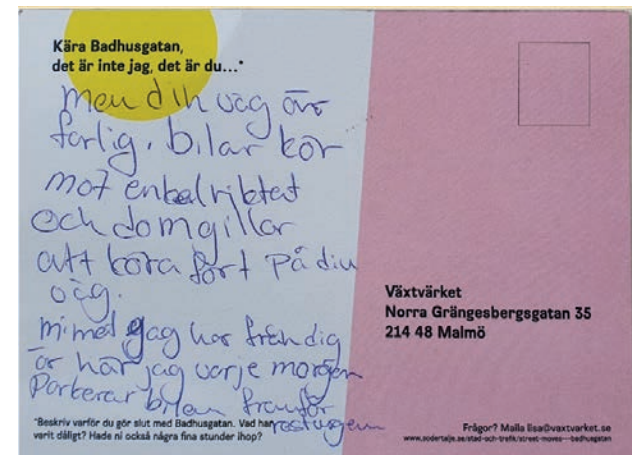 Kära Badhusgatan,
det är inte jag, det är du...*
men din väg är
farlig. bilar kör
mot enkelriktat
och dom gillar
att köra fort på din
väg.
minnet jag har från dig
är när jag varje morgon
Parkerar bilen framför
restaurangen
*Beskriv varför du gör slut med Badhusgatan. Vad har
varit dåligt? Hade ni också några fina stunder ihop?
Växtvärket
Norra Grängesbergsgatan 35
214 48 Malmö
Frågor? Maila lisa@vaxtvarket.se
www.sodertalje.se/stad-och-trafik/street-moves---badhusgatan